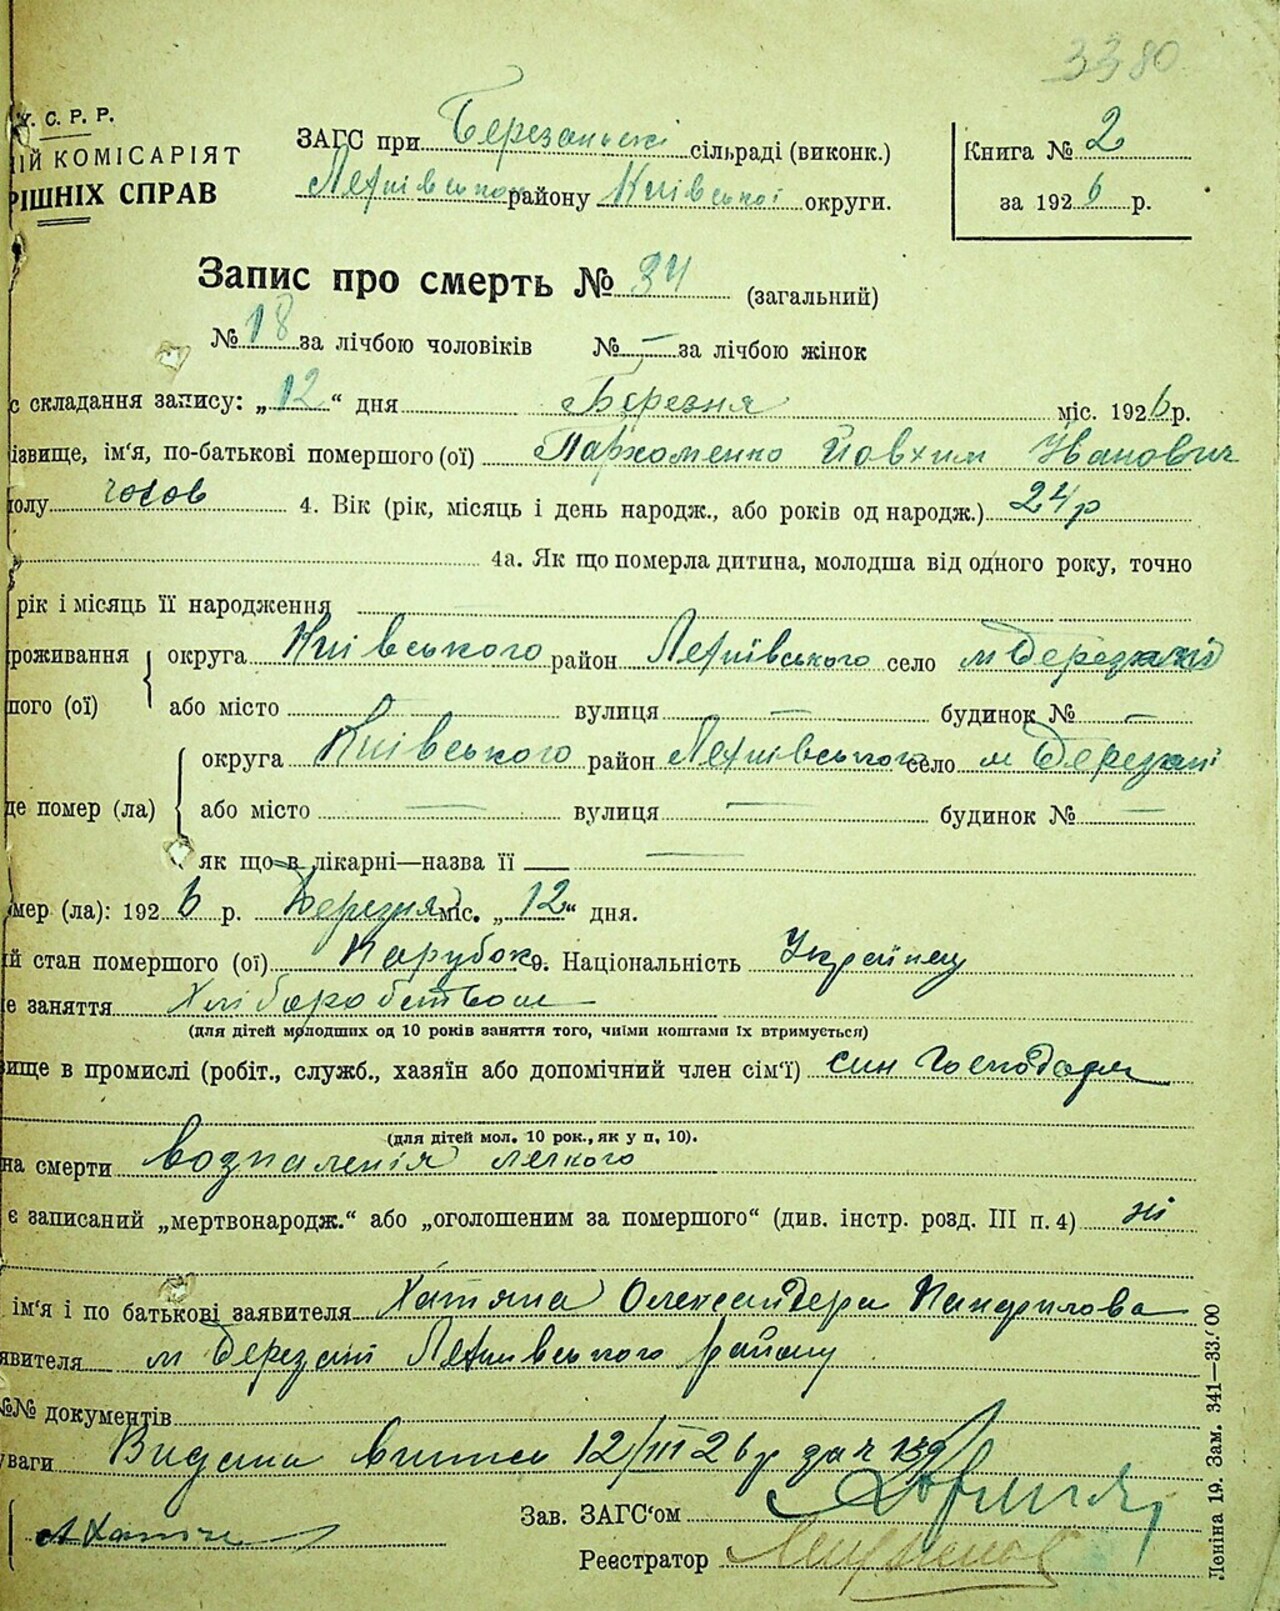 3380
У. С. Р. Р.
ИЙ КОМІСАРІЯТ
РІШНІХ СПРАВ
ЗАГС при Березанські сільраді (виконк.)
району Київської округи.
Книга № 2
за 1926 р.
Запис про смерть № 34 (загальний)
№ 18 за лічбою чоловіків № — за лічбою жінок
с складання запису: „12“ дня Березня міс. 1926 р.
ізвище, ім'я, по-батькові помершого (ої) Пархоменко Йовхим Іванович
полу чолов 4. Вік (рік, місяць і день народж., або років од народж.) 24 р
4а. Як що померла дитина, молодша від одного року, точно
рік і місяць її народження
роживання округа Київського район село м Березані
шого (ої) або місто — вулиця — будинок № —
округа Київського район село м Березані
де помер (ла) або місто — вулиця — будинок № —
як що в лікарні—назва її —
мер (ла): 1926 р. Березня міс. „12“ дня.
ій стан помершого (ої) Парубок 9. Національність Українец
е заняття Хліборобством
(для дітей молодших од 10 років заняття того, чиїми коштами їх втримується)
вище в промислі (робіт., служб., хазяїн або допомічний член сім'ї) син Господаря
(для дітей мол. 10 рок., як у п, 10).
на смерти возпаленія легкого
є записаний „мертвонародж.“ або „оголошеним за помершого“ (див. інстр. розд. III п. 4) ні
ім'я і по батькові заявителя Олександера Панфилова
явителя м Березані району
№№ документів
уваги Видана випись 12/III 26 р за ч 139
Зав. ЗАГС'ом
Реєстратор
Леніна 19. Зам. 341—33.'00